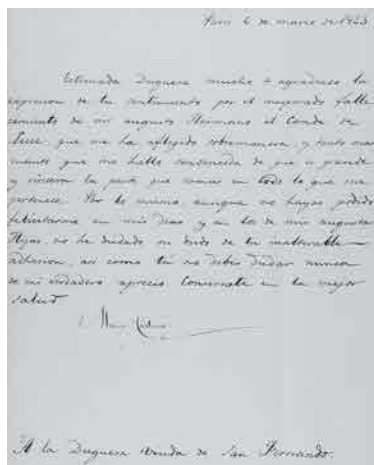 Paris 6 de marzo de
Estimada Duquesa mucho te agradezco la
expresion de tu sentimiento por el inesperado falle
cimiento de mi augusto Hermano el Conde de
que me ha aflijido sobremanera, y tanto mas
cuanto que me hallo convencida de que es grande
y sincera la pena que tomas en todo lo que me
pertenece. Por lo mismo aunque no hayas podido
felicitarme en mis dias y en los de mis augustas
Hijas, no he dudado ni dudo de tu inalterable
adhesion, asi como tú no debes dudar nunca
de mi verdadero aprecio. Conservate en la mejor
salud
Maria Cristina
A la Duquesa Viuda de San Fernando.